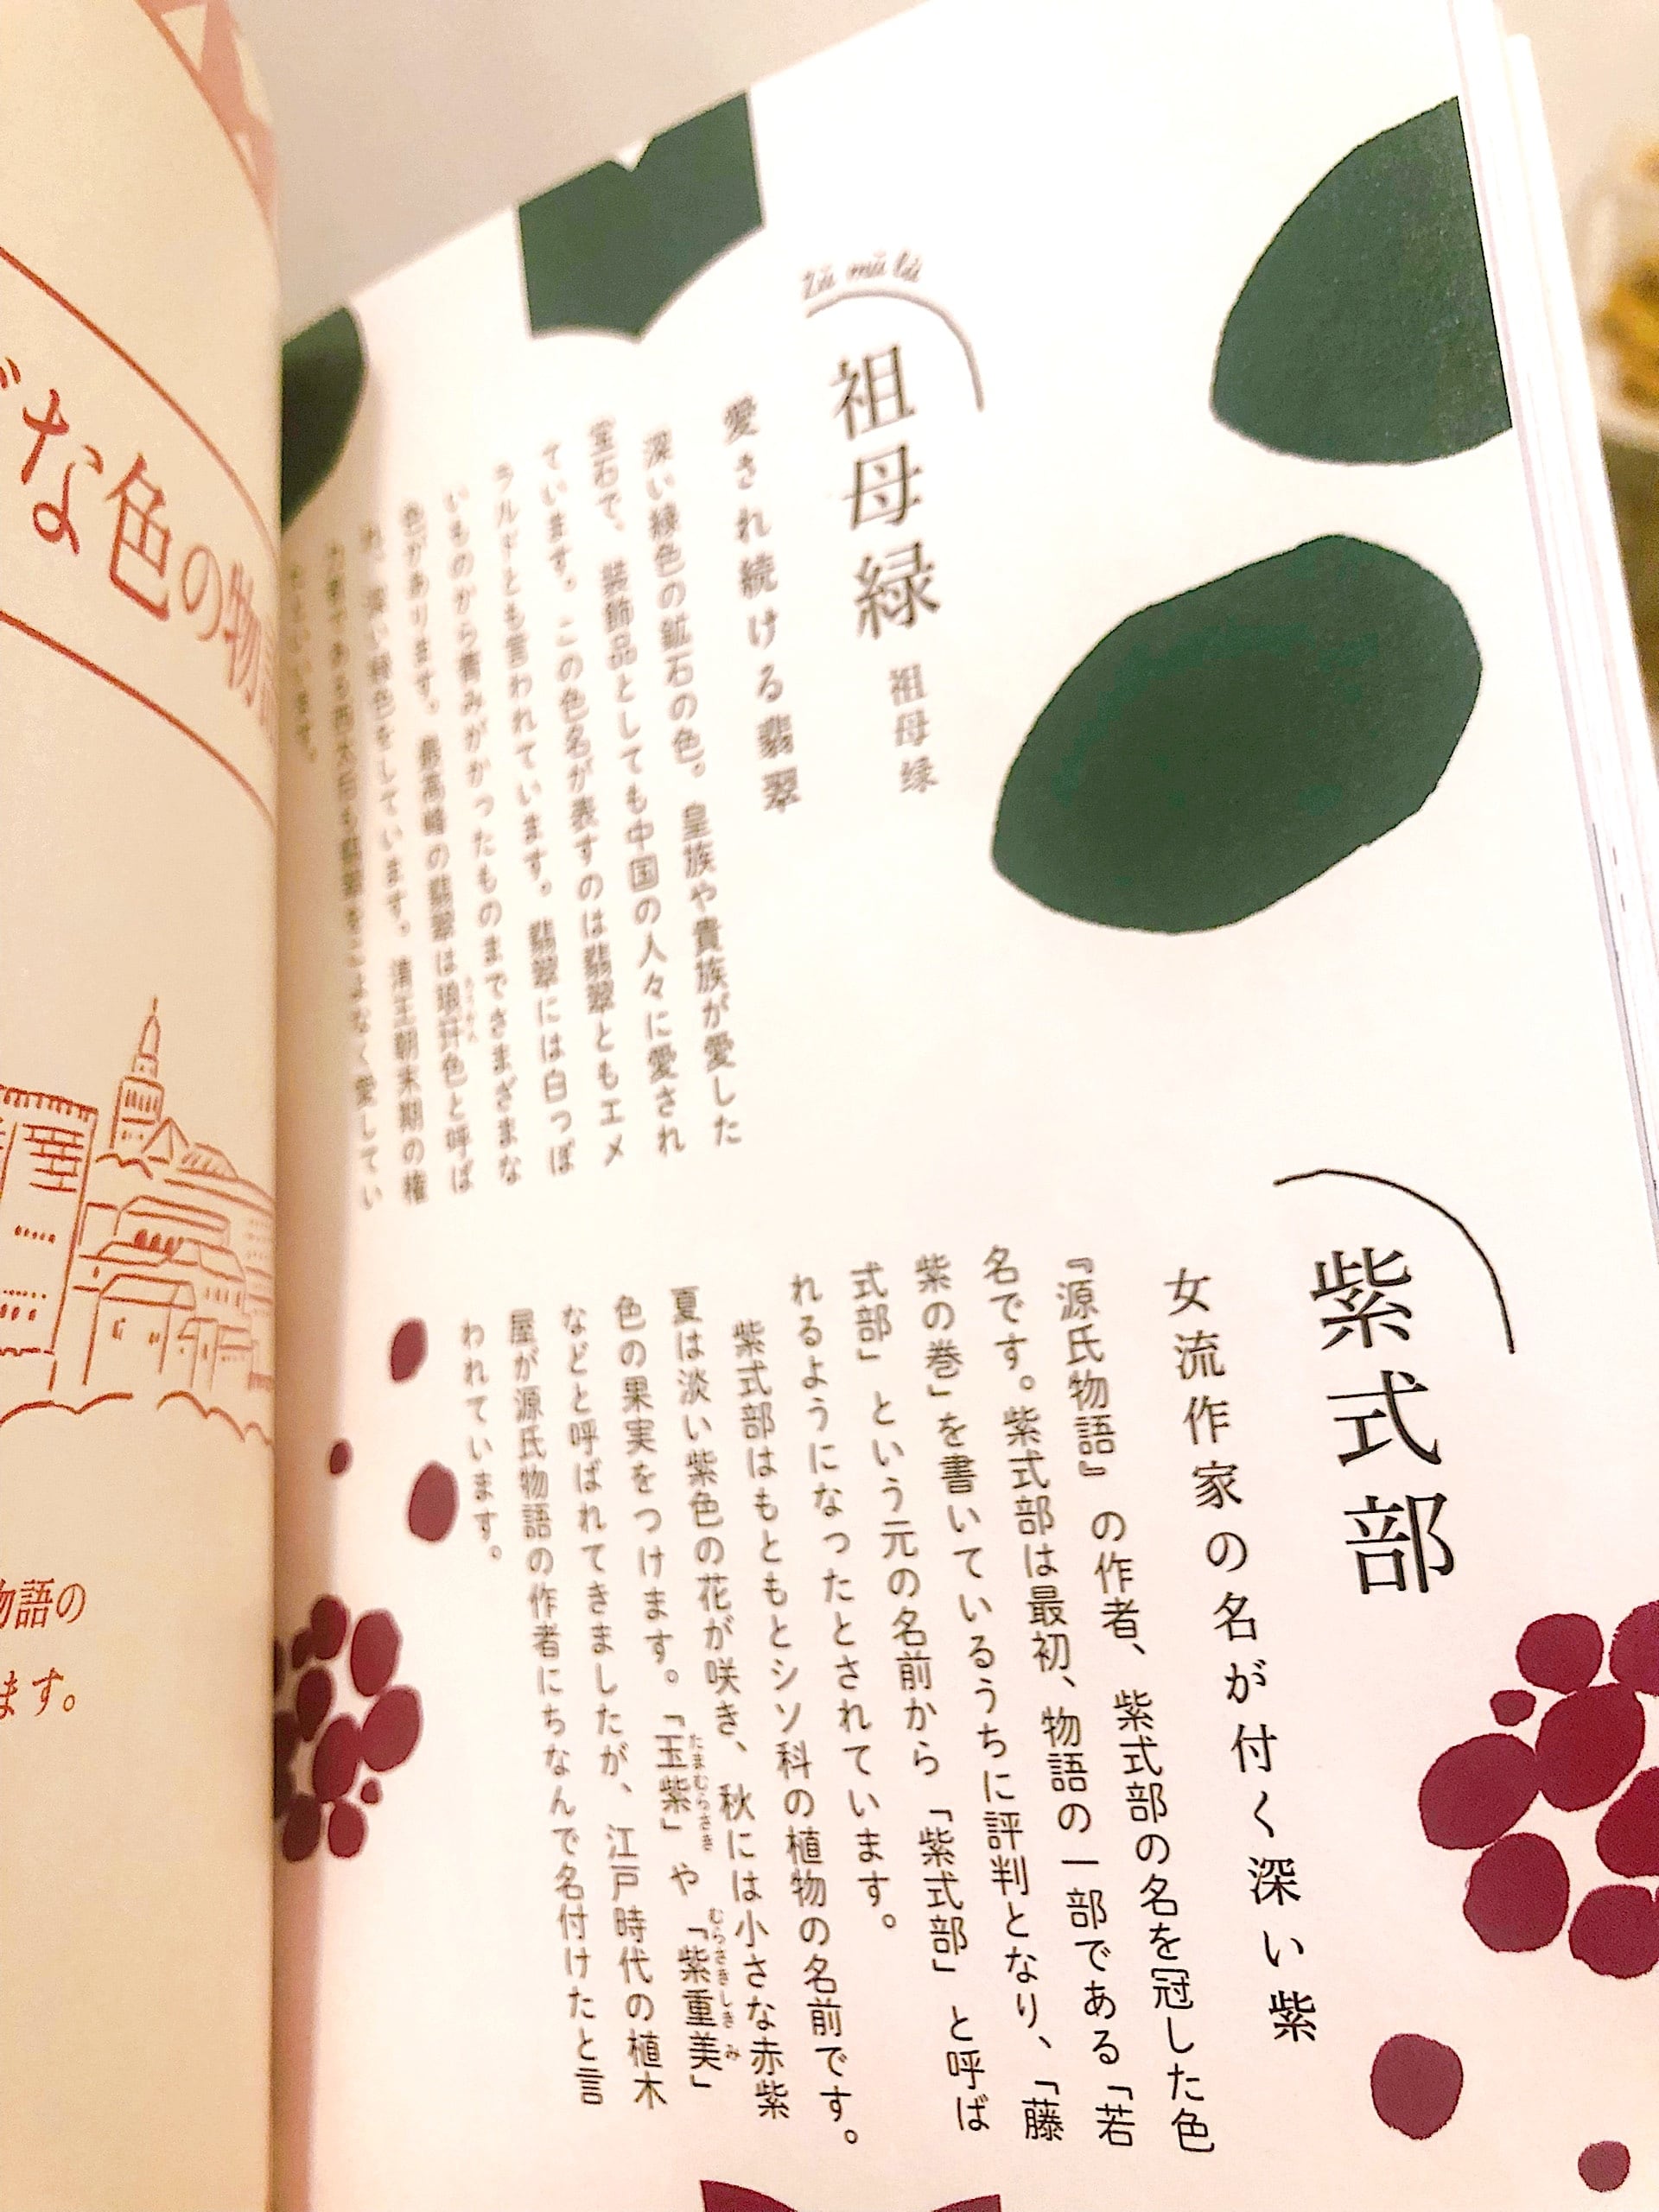 Zǔ mǔ lǜ
祖母緑
祖母绿
愛され続ける翡翠
深い緑色の鉱石の色。皇族や貴族が愛した
宝石で、装飾品としても中国の人々に愛され
ています。この色名が表すのは翡翠ともエメ
ラルドとも言われています。翡翠には白っぽ
いものから青みがかったものまでさまざまな
色があります。最高峰の翡翠は琅玕色と呼ば
れ、深い緑色をしています。清王朝末期の権
力者である西太后も翡翠をこよなく愛してい
たといいます。
紫式部
女流作家の名が付く深い紫
『源氏物語』の作者、紫式部の名を冠した色
名です。紫式部は最初、物語の一部である「若
紫の巻」を書いているうちに評判となり、「藤
式部」という元の名前から「紫式部」と呼ば
れるようになったとされています。
紫式部はもともとシソ科の植物の名前です。
夏は淡い紫色の花が咲き、秋には小さな赤紫
色の果実をつけます。「玉紫」や「紫重美」
たまむらさき
むらさきしきみ
などと呼ばれてきましたが、江戸時代の植木
屋が源氏物語の作者にちなんで名付けたと言
われています。
な色の物
物語の
ます。